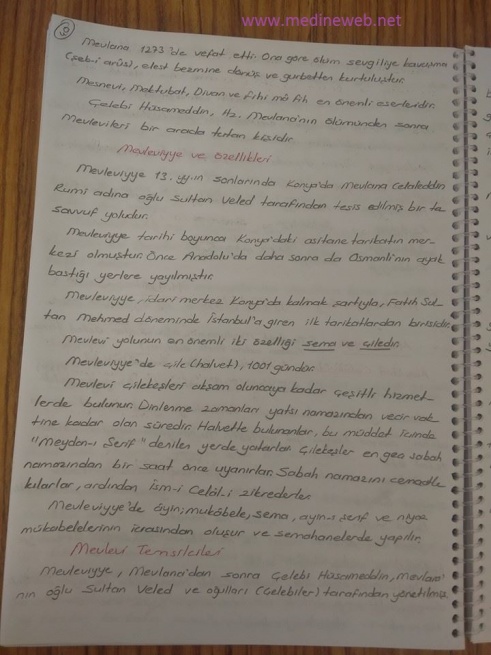 www.medineweb.net
9
Mevlana 1273'de vefat etti. Ona göre ölüm sevgiliye kavuşma
(şeb-i arûs), elest bezmine dönüş ve gurbetten kurtuluştur.
Mesnevi, Mektubat, Divan ve Fihi mâ fih en önemli eserleridir.
Çelebi Hüsameddin, Hz. Mevlana'nın ölümünden sonra
Mevlevileri bir arada tutan kişidir.
Mevleviyye ve Özellikleri
Mevleviyye 13. yy.ın sonlarında Konya'da Mevlana Celaleddin
Rumi adına oğlu Sultan Veled tarafından tesis edilmiş bir ta
savvuf yoludur.
Mevleviyye tarihi boyunca Konya'daki asitane tarikatın mer-
kezi olmuştur. Önce Anadolu'da daha sonra da Osmanlı'nın ayak
bastığı yerlere yayılmıştır.
Mevleviyye, idari merkez Konya'da kalmak şartıyla, Fatih Sul-
tan Mehmed döneminde İstanbul'a giren ilk tarikatlardan birisidir.
Mevlevi yolunun en önemli iki özelliği sema ve çiledir.
Mevleviyye'de çile (halvet), 1001 gündür.
Mevlevi çilekeşleri akşam oluncaya kadar çeşitli hizmet-
lerde bulunur. Dinlenme zamanları yatsı namazından vecir vak-
tine kadar olan süredir. Halvette bulunanlar, bu müddet içinde
"Meydan-ı Şerif" denilen yerde yatarlar. Çilekeşler en geç sabah
namazından bir saat önce uyanırlar. Sabah namazını cemaatle
kılarlar, ardından İsm-i Celâl-i zikrederler.
Mevleviyye'de âyin; mukâbele, sema, ayin-i şerif ve niyaz
mukabelelerinin icrasından oluşur ve semahanelerde yapılır.
Mevlevi Temsilcileri
Mevleviyye, Mevlana'dan sonra Çelebi Hüsameddin, Mevlana'
nın oğlu Sultan Veled ve oğulları (Çelebiler) tarafından yönetilmiş,